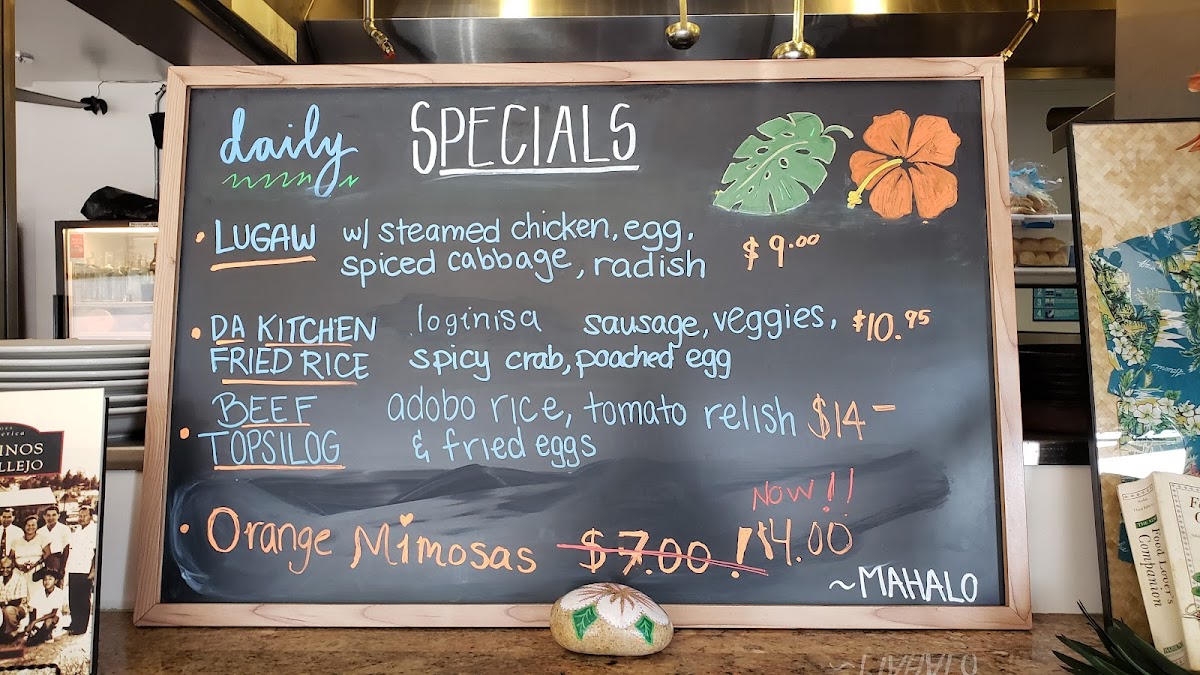 daily SPECIALS
• LUGAW w/ steamed chicken, egg, spiced cabbage, radish $9.00
• DA KITCHEN FRIED RICE loginisa sausage, veggies, spicy crab, poached egg $10.95
• BEEF TOPSILOG adobo rice, tomato relish & fried eggs $14-
NOW!!
• Orange Mimosas $7.00 ! $4.00
~MAHALO
INOS
LLEJO
THE
Food Lover's
Companion